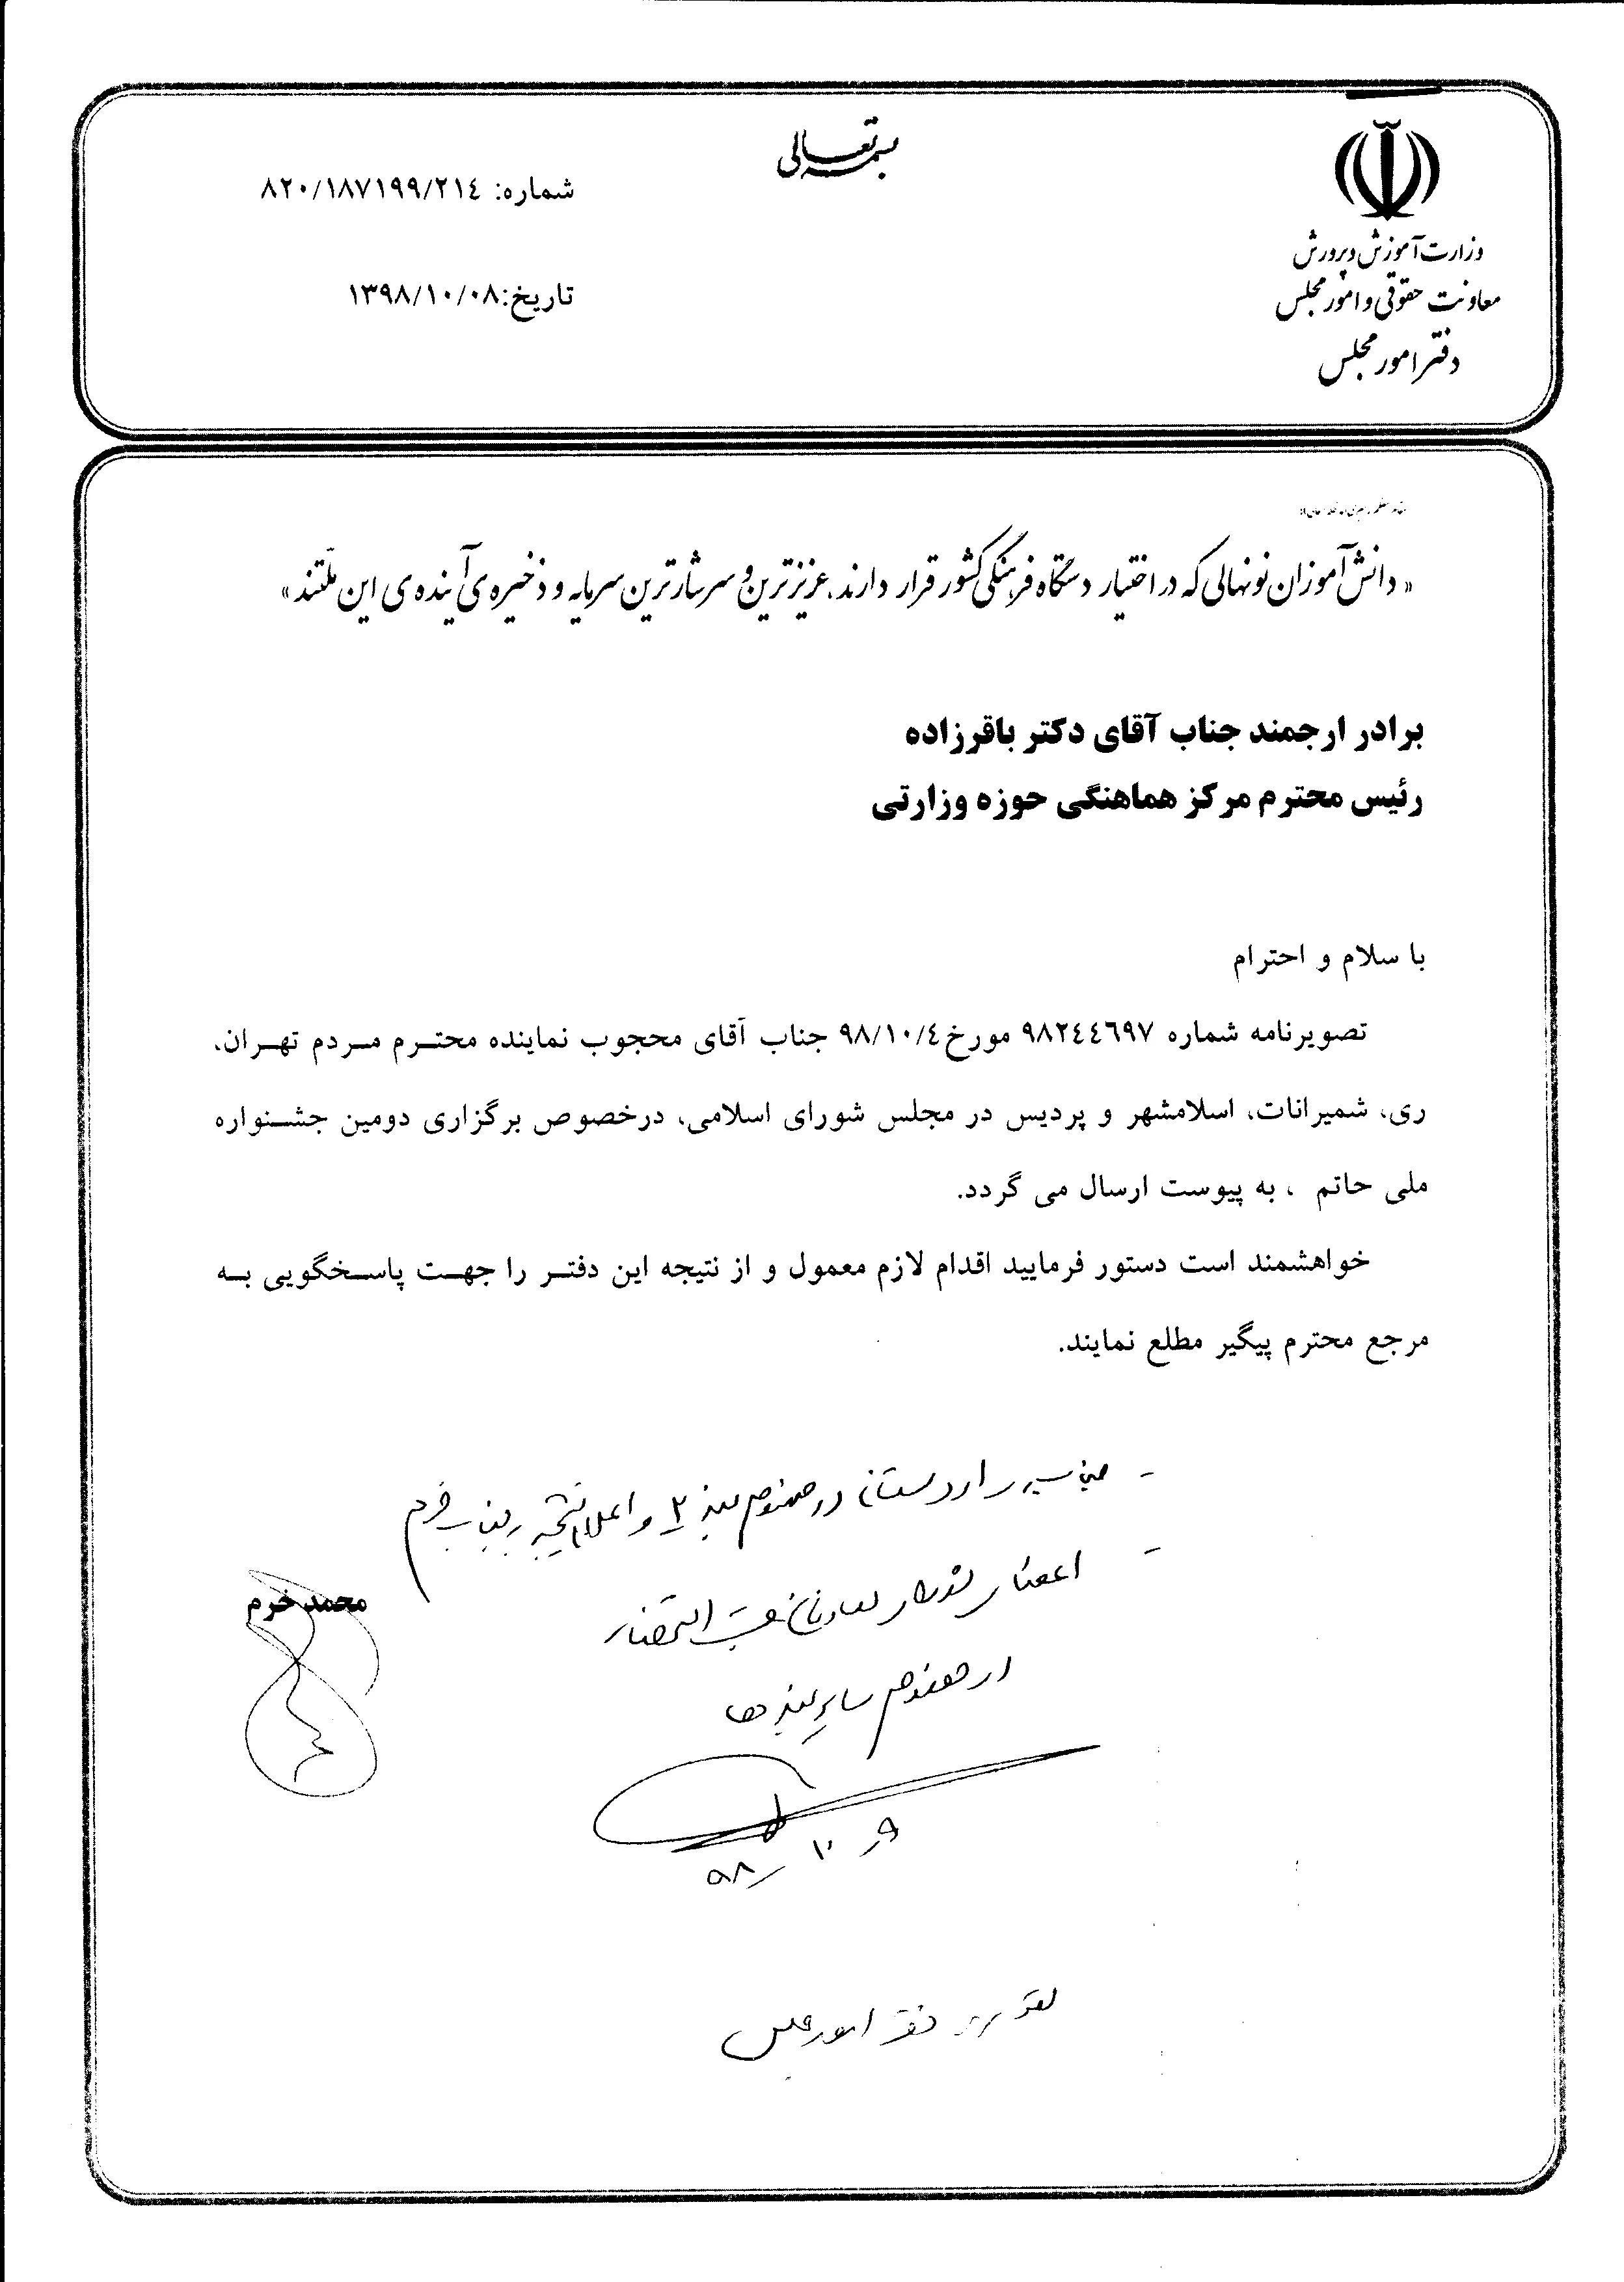 بسمه تعالی
وزارت آموزش و پرورش
معاونت حقوقی و امور مجلس
دفتر امور مجلس
شماره: ۸۲۰/۱۸۷۱۹۹/۲۱٤
تاریخ:۱۳۹۸/۱۰/۰۸
« دانش آموزان نونهالی که در اختیار دستگاه فرهنگی کشور قرار دارند، عزیزترین و سرشارترین سرمایه و ذخیره ی آینده ی این ملتند »
برادر ارجمند جناب آقای دکتر باقرزاده
رئیس محترم مرکز هماهنگی حوزه وزارتی
با سلام و احترام
تصویرنامه شماره ۹۸۲٤٤٦۹۷ مورخ ۹۸/۱۰/٤ جناب آقای محجوب نماینده محترم مردم تهران،
ری، شمیرانات، اسلامشهر و پردیس در مجلس شورای اسلامی، درخصوص برگزاری دومین جشنواره
ملی حاتم ، به پیوست ارسال می گردد.
خواهشمند است دستور فرمایید اقدام لازم معمول و از نتیجه این دفتر را جهت پاسخگویی به
مرجع محترم پیگیر مطلع نمایند.
در خصوص بند ۲ و اعلام نتیجه به جناب خرم
اعضای شورای معاونان
در خصوص سایر بندها
محمد خرم
۹۸/۱۰/۹
دفتر امور مجلس